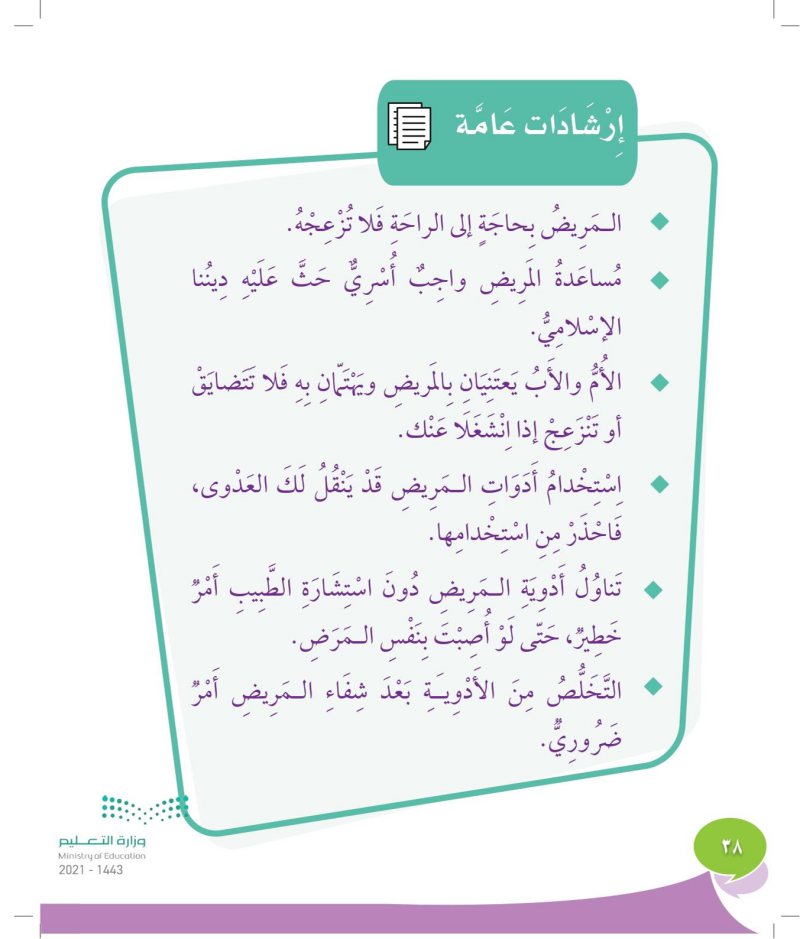 إِرْشَادَات عَامَّة
الـمَرِيضُ بِحاجَةٍ إلى الراحَةِ فَلا تُزْعِجْهُ.
مُساعَدةُ المَرِيضِ واجِبٌ أُسْرِيٌّ حَثَّ عَلَيْهِ دِينُنا
الإسْلامِيُّ.
الأُمُّ والأَبُ يَعتَنِيَانِ بِالمَريضِ ويَهْتَمّانِ بِهِ فَلا تَتَضايَقْ
أو تَنْزَعِجْ إذا اِنْشَغَلَا عَنْك.
اِسْتِخْدامُ أَدَوَاتِ الـمَرِيضِ قَدْ يَنْقُلُ لَكَ العَدْوى،
فَاحْذَرْ مِنِ اسْتِخْدامِها.
تَناوُلُ أَدْوِيَةِ الـمَرِيضِ دُونَ اسْتِشَارَةِ الطَّبِيبِ أَمْرٌ
خَطِيرٌ، حَتّى لَوْ أُصِبْتَ بِنَفْسِ الـمَرَضِ.
التَّخَلُّصُ مِنَ الأَدْوِيَـةِ بَعْدَ شِفَاءِ الـمَرِيضِ أَمْرٌ
ضَرُورِيٌّ.
وزارة التعـليم
Ministry of Education
2021 - 1443
٣٨